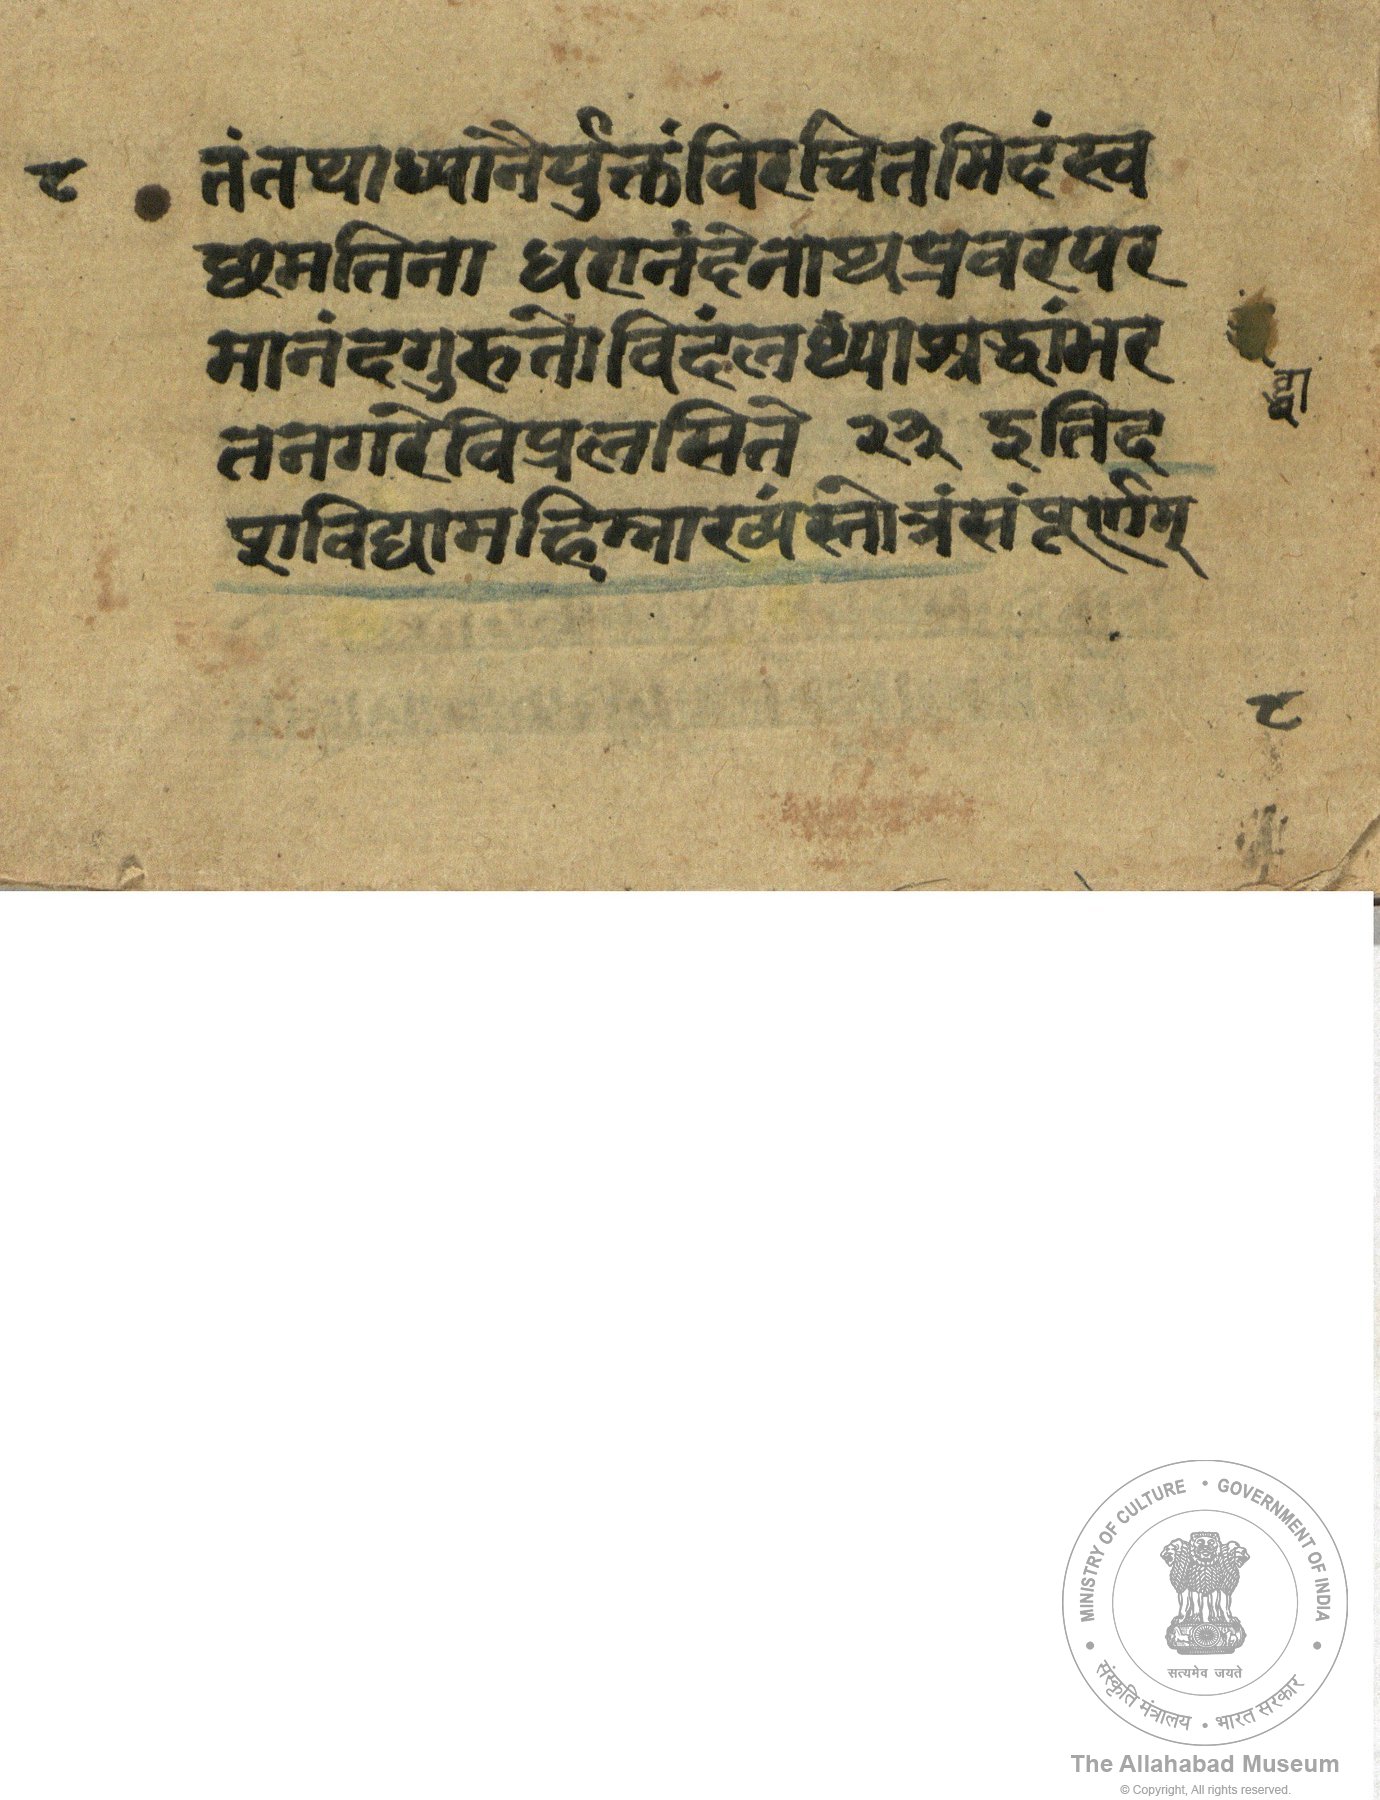 ८
तंतथाध्यानैर्युक्तंविरचितमिदंस्व
छमतिना धरानंदेनाथप्रवरपर
मानंदगुरुतोविदंलब्ध्याश्रद्धांभर
तनगरेविप्रलसिते २३ इतिद
शविद्यामहिम्नाख्यंस्तोत्रंसंपूर्णम्
८
MINISTRY OF CULTURE • GOVERNMENT OF INDIA
सत्यमेव जयते
संस्कृति मंत्रालय • भारत सरकार
The Allahabad Museum
© Copyright, All rights reserved.